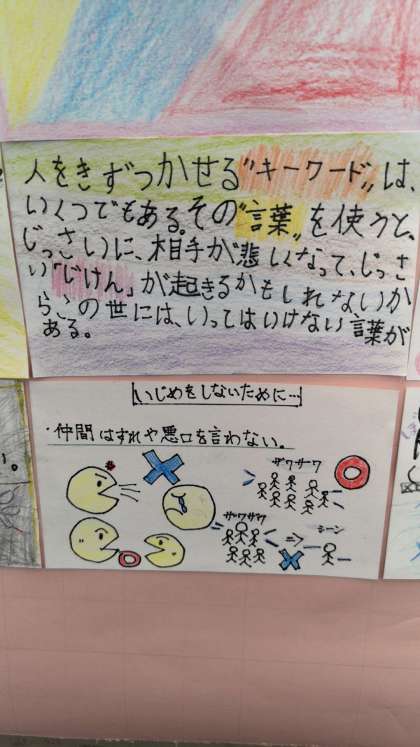 人をきずつかせる"キーワード"は、
いくつでもある。その"言葉"を使うと、
じっさいに、相手が悲しくなって、じっさ
い「じけん」が起きるかもしれない)か
らこの世には、いってはいけない言葉が
ある。
いじめをしないために…
・仲間はずれや悪口を言わない。
ザワザワ
ザワザワ
シーン